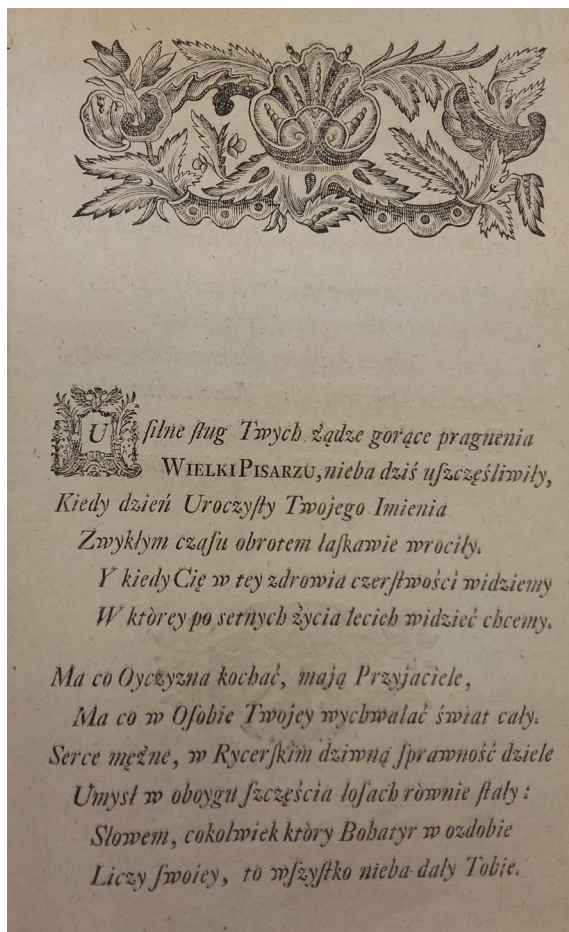 Uſilne ſług Twych żądze gorące pragnenia
WIELKI PISARZU, nieba dziś uſzczęśliwiły,
Kiedy dzień Uroczyſty Twojego Imienia
Zwykłym czaſu obrotem łaſkawie wrociły.
Y kiedy Cię w tey zdrowia czerſtwości widziemy
W ktòrey po setnych życia lecieh widzieć chcemy.
Ma co Oyczyzna kochać, mają Przyjaciele,
Ma co w Oſobie Twojey wychwalać świat cały.
Serce mężne, w Rycerſkim dziwną ſprawność dziele
Umysł w oboygu ſzczęścia loſach ròwnie ſtały:
Słowem, cokolwiek ktòry Bohatyr w ozdobie
Liczy ſwoiey, to wſzyſtko nieba dały Tobie.